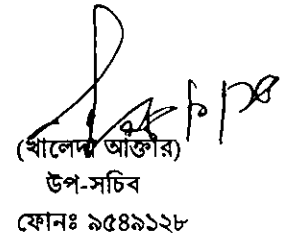 (খালেদা আক্তার)
উপ-সচিব
ফোনঃ ৯৫৪৯১২৮